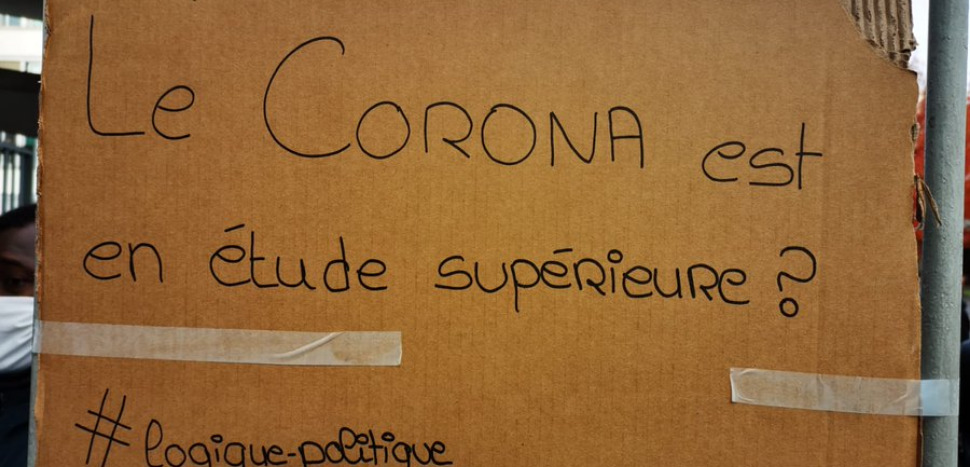 Le CORONA est
en étude supérieure ?
#logique-politique